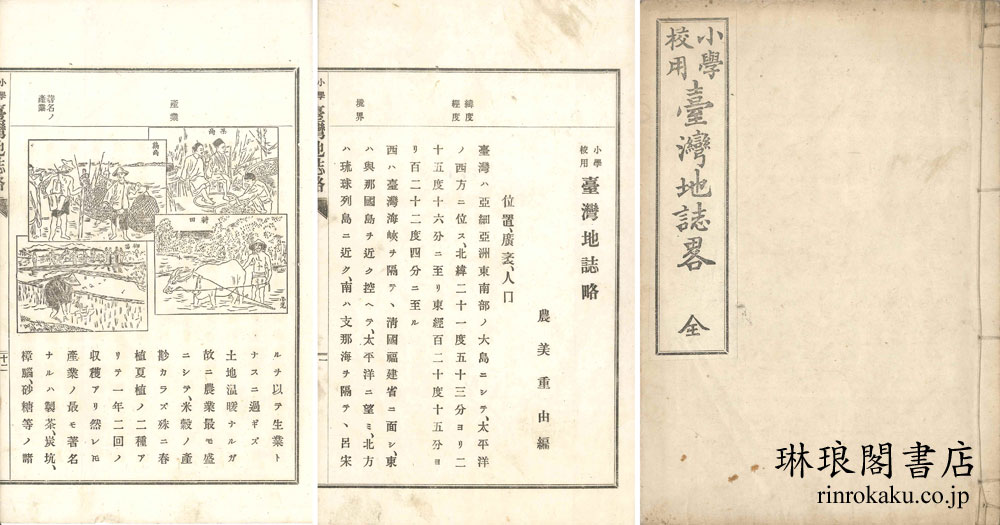 小學校用
臺灣地誌畧 全
琳琅閣書店
rinrokaku.co.jp
小學校用 臺灣地誌略
農美重由編
位置、廣袤、人口
緯度
經度
臺灣ハ亞細亞洲東南部ノ大島ニシテ、太平洋
ノ西方ニ位ス、北緯二十一度五十三分ヨリ二
十五度十六分ニ至リ東經百二十度十五分ヨ
リ百二十二度四分ニ至ル
境界
西ハ臺灣海峽ヲ隔テヽ清國福建省ニ面シ、東
ハ與那國島ヲ近ク控ヘテ、太平洋ニ望ミ、北方
ハ琉球列島ニ近ク、南ハ支那海ヲ隔テヽ呂宋
小學 臺灣地誌略
一
產業
耕田
ルヲ以テ生業ト
ナスニ過ギズ
土地温暖ナルガ
故ニ農業最モ盛
ニシテ、米穀ノ產
尠カラズ殊ニ春
植夏植ノ二種ア
リテ一年二回ノ
收穫アリ然レ𪜈
著名ノ
產業
產業ノ最モ著名
ナルハ製茶、炭坑、
樟腦、砂糖等ノ諸
小學 臺灣地誌略
十二